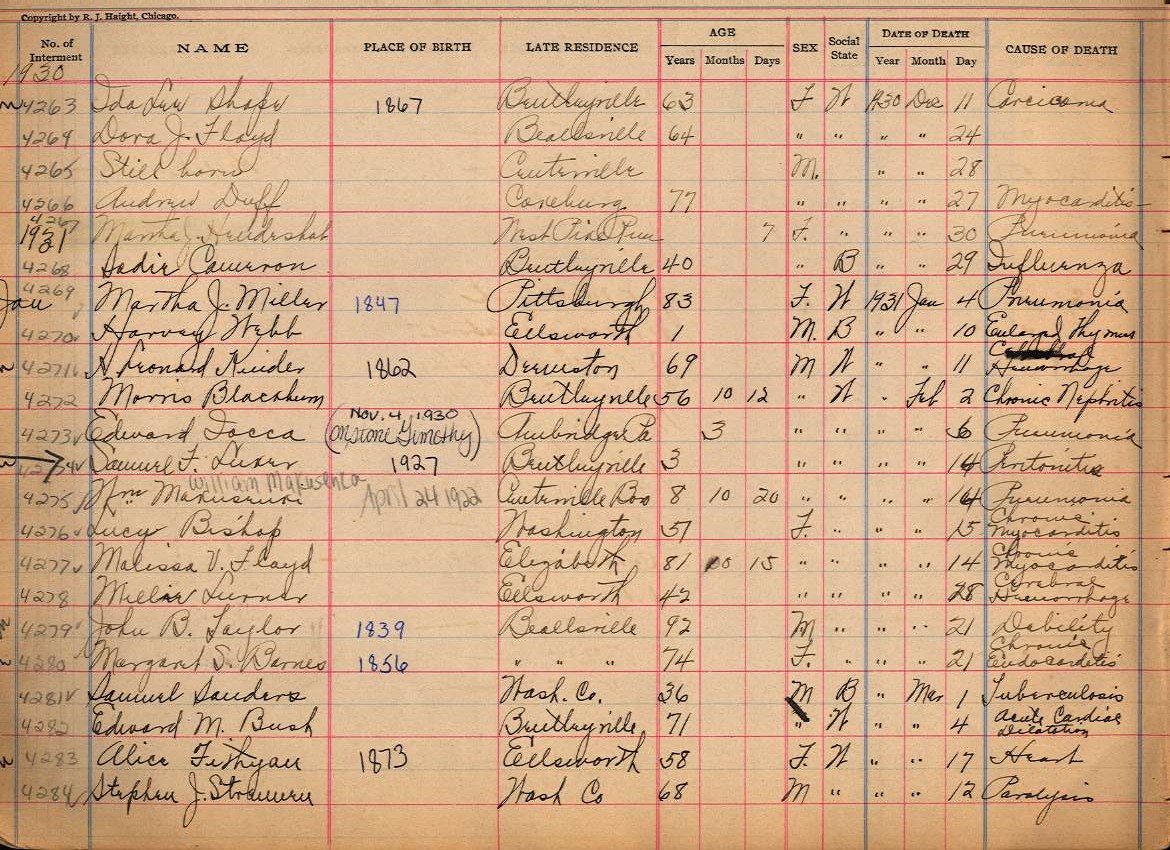 Copyright by R. J. Haight, Chicago.
No. of Interment NAME PLACE OF BIRTH LATE RESIDENCE AGE Years Months Days SEX Social State DATE OF DEATH Year Month Day CAUSE OF DEATH
1930
4263 Ida Lee Shape 1867 Bentleyville 63 F W 1930 Dec 11 Carcicoma
4264 Dora J. Floyd Beallsville 64 " " " " 24
4265 Still born Centerville M. " " 28
4266 Andrew Duff Cokeburg 77 " " " " 27 Myocarditis
4267
1931 Martha J. West Pike Run 7 F. " " " 30 Pneumonia
4268 Sadie Cameron Bentleyville 40 " B " " 29 Influenza
Jan 4269 Martha J. Miller 1847 Pittsburgh 83 F. W 1931 Jan 4 Pneumonia
4270 Harvey Webb Ellsworth 1 M. B " " 10 Enlarged Thymus
4271 A. Leonard Kinder 1862 Deemston 69 M W " " 11 Hemorrhage
4272 Morris Blackburn Bentleyville 56 10 12 " W " Feb 2 Chronic Nephritis
4273 Edward Tocca (Nov. 4, 1930 on stone Timothy) Ambridge Pa 3 " " " " 6 Pneumonia
4274 Samuel F. Luxer 1927 Bentleyville 3 " " " " 14 Peritonitis
William Makusenca
4275 Wm April 24 1922 Centerville Boro 8 10 20 " " " " 14 Pneumonia
4276 Lucy Bishop Washington 57 F. " " " 15 Chronic Myocarditis
4277 Malissa V. Floyd Elizabeth 81 10 15 " " " " 14 Chronic Myocarditis
4278 Millie Turner Ellsworth 42 " " " " 28 Cerebral Hemorrhage
4279 John B. Taylor 1839 Beallsville 92 M " " " 21 Dability
4280 Margaret S. Barnes 1856 " " " 74 F. " " " 21 Chronic Endocarditis
4281 Samuel Sanders Wash. Co. 36 M B " Mar 1 Tuberculosis
4282 Edward M. Bush Bentleyville 71 " W " " 4 Acute Cardiac Dilatation
4283 Alice Fithyan 1873 Ellsworth 58 F. W " " 17 Heart
4284 Stephen J. Wash Co 68 M " " " 12 Paralysis